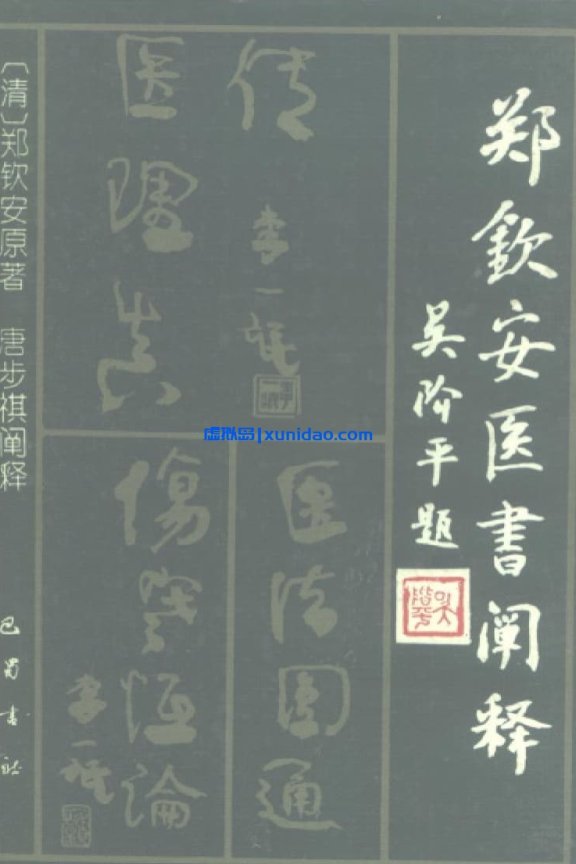 郑钦安医书阐释
吴阶平题
医理真
传
李一氓
医法圆通
伤寒恒论
李一氓
〔清〕郑钦安原著 唐步祺阐释
巴蜀书社
虚拟岛|xunidao.com